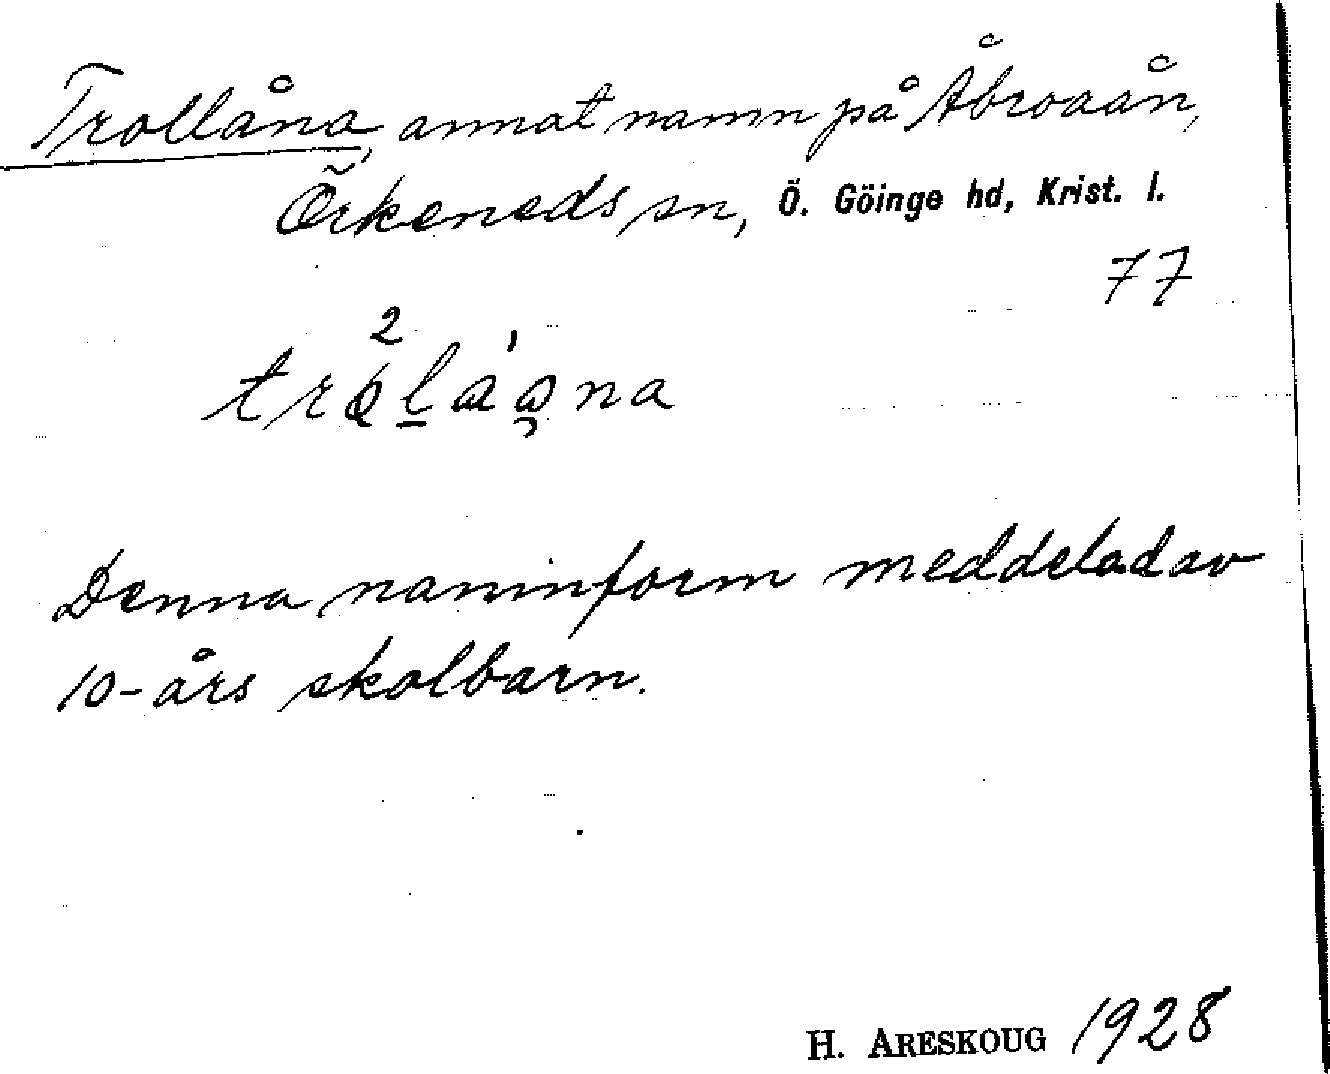 Trollåna, annat namn på Åbroaån,
Örkeneds sn, Ö. Göinge hd, Krist. l.
77
Denna namnform meddelad av
10-års skolbarn.
H. ARESKOUG 1928